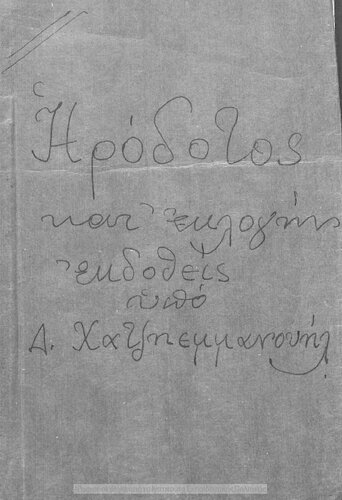 Ἡρόδοτος
κατ' ἐκλογὴν
ἐκδοθεὶς
ὑπὸ
Δ. Χατζηεμμανουήλ